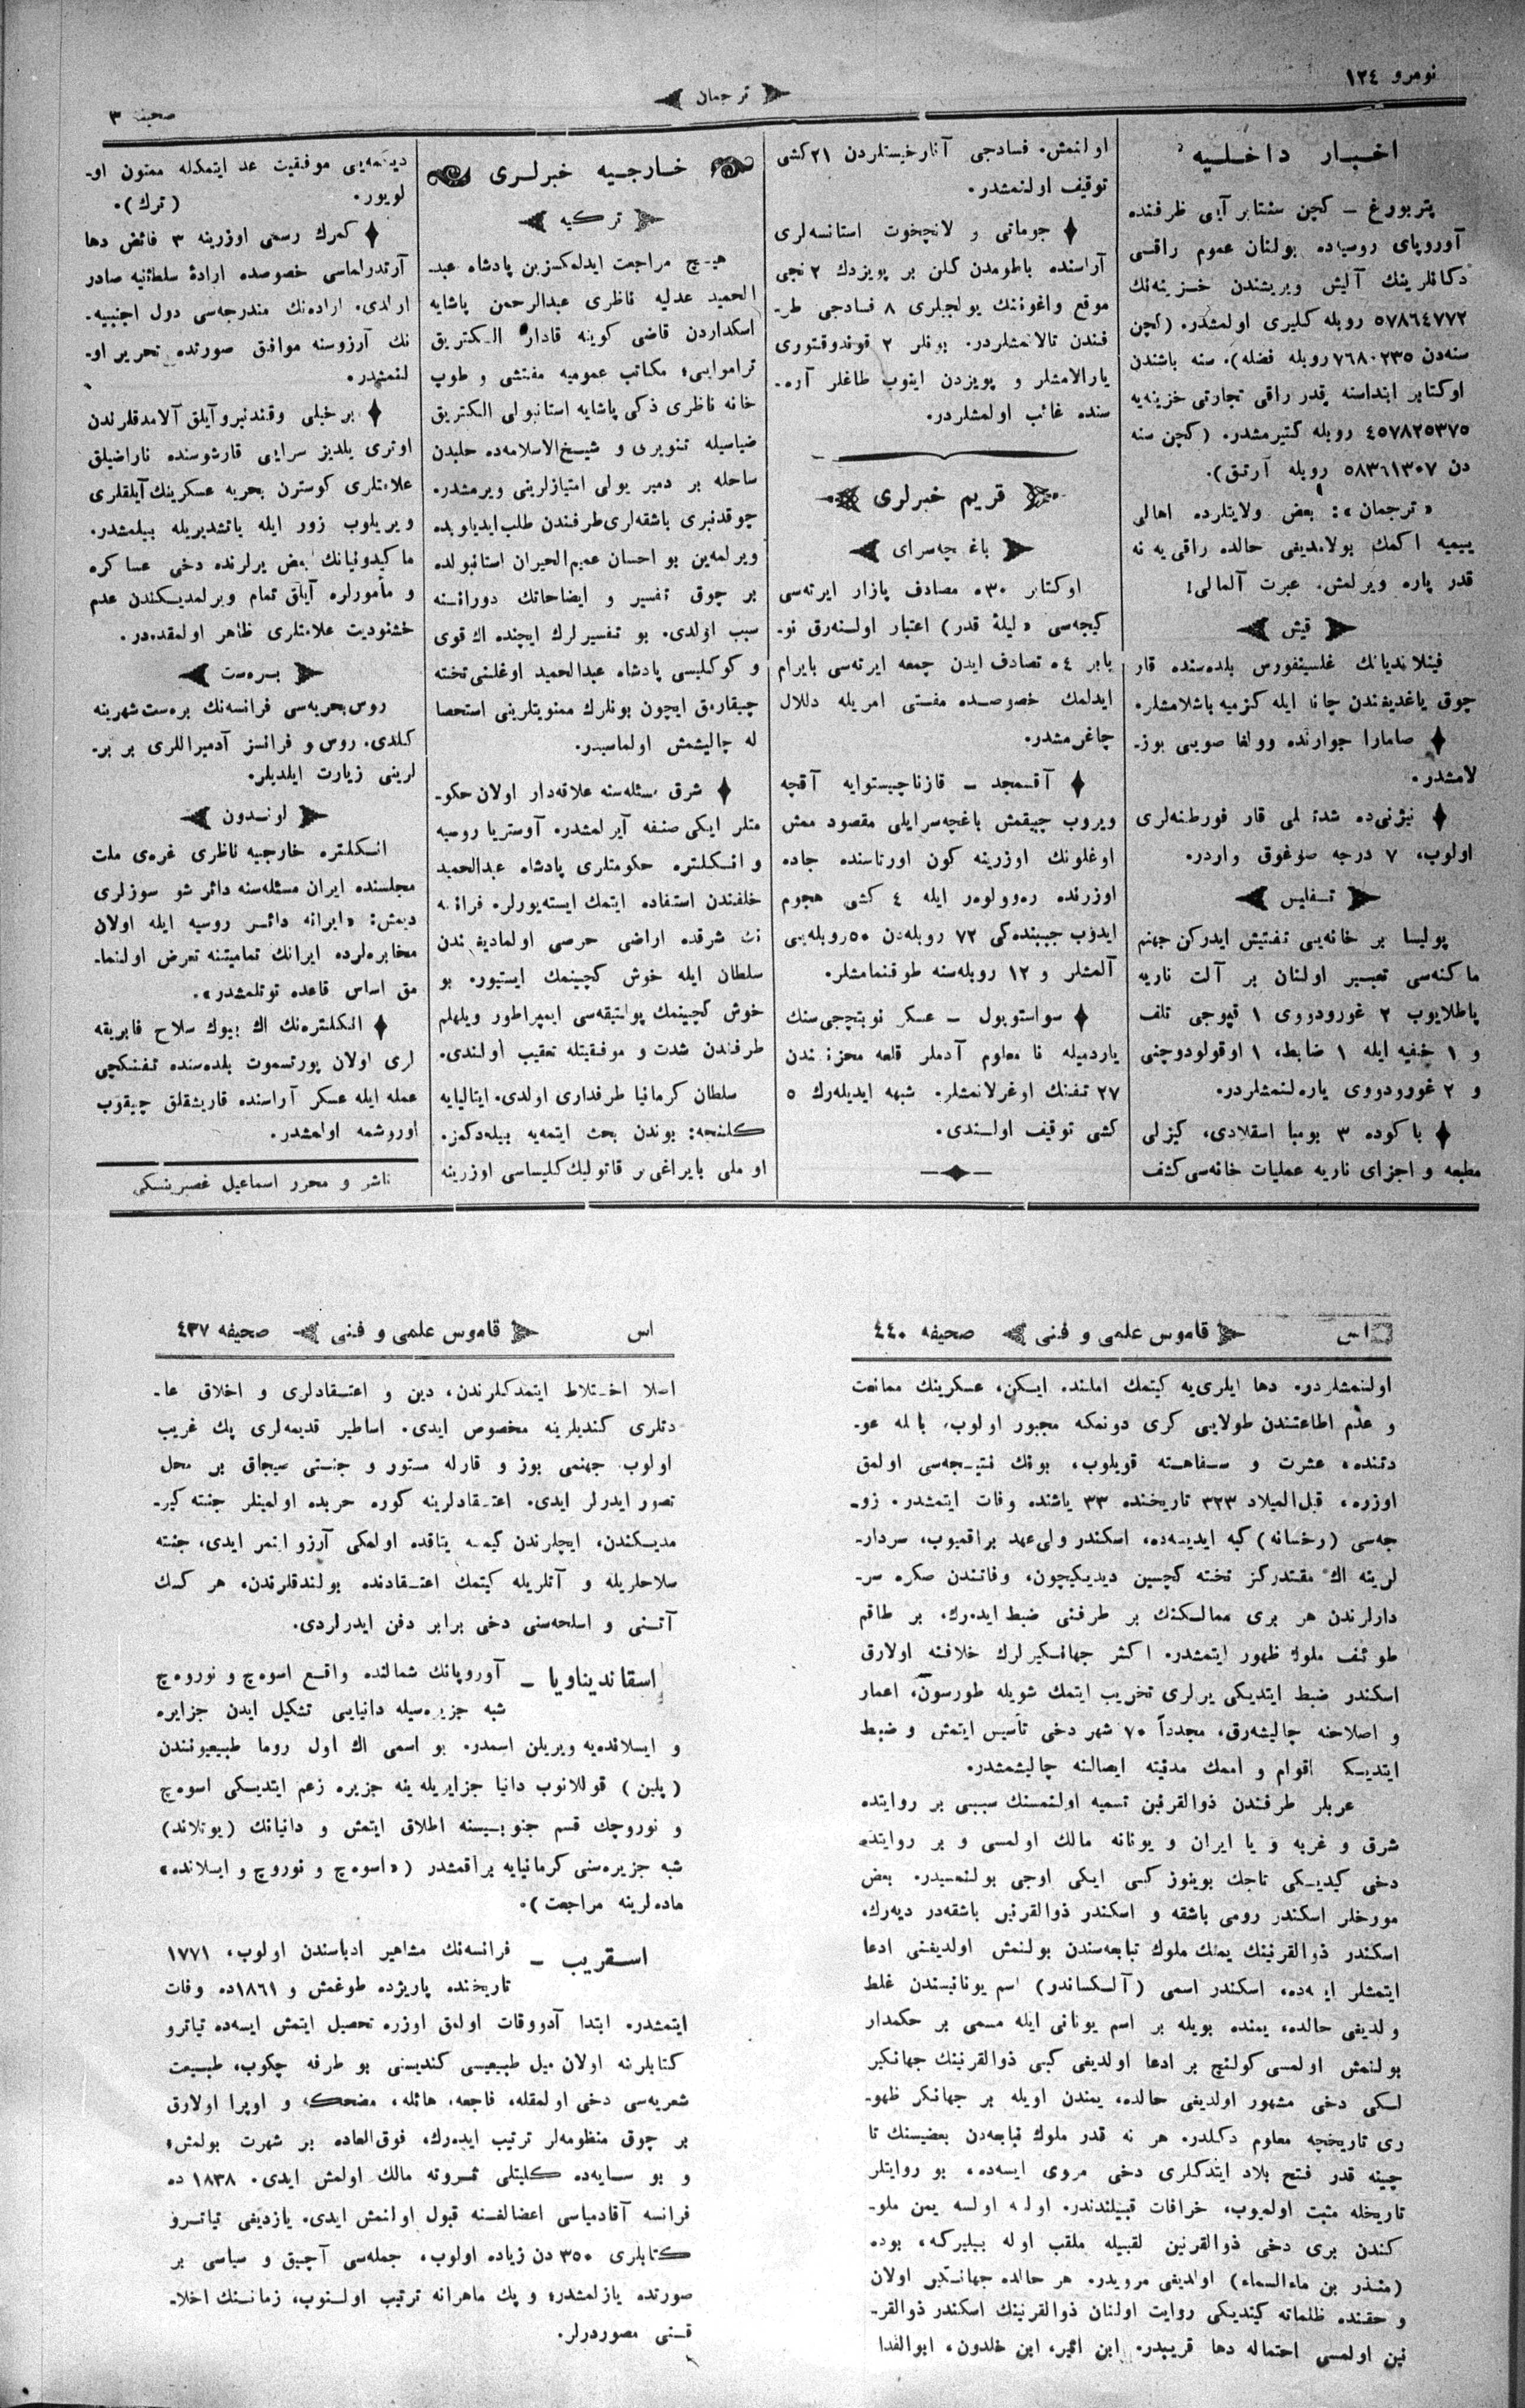 نومرو ١٢٤
ترجمان
صحیفه ٣
اخبار داخلیه
پتربورغ – کچن سنتابر آیی ظرفنده
آوروپای روسیاده بولنان عموم راقی
دکانلرینك آلیش ویریشندن خزینه‌نك
٥٧٨٦٤٧٧٢ روبله کلیری اولمشدر. (کچن
سنه‌دن ٧٦٨٠٢٣٥ روبله فضله). سنه باشندن
اوکتابر ابتداسنه قدر راقی تجارتی خزینه‌یه
٤٥٧٨٢٥٣٧٥ روبله کتیرمشدر. (کچن سنه
دن ٥٨٣٦١٣٠٧ روبله آرتق).
«ترجمان»: بعض ولایتلرده اهالی
ییمیه اکمك بولامدیغی حالده راقی‌یه نه
قدر پاره ویرلمش. عبرت آلمالی!
قیش
فینلاندیانك غلسینغورس بلده‌سنده قار
چوق یاغدیغندن چانا ایله کزمیه باشلامشلر.
صامارا جوارنده وولغا صویی بوز-
لامشدر.
نیژنی‌ده شدتلی قار فورطنه‌لری
اولوب، ٧ درجه صوغوق واردر.
تفلیس
پولیسا بر خانه‌یی تفتیش ایدرکن جهنم
ماکنه‌سی تعبیر اولنان بر آلت ناریه
پاطلایوب ٢ غورودووی ١ قپوجی تلف
و ١ خفیه ایله ١ ضابط، ١ اوقولودوچنی
و ٢ غورودووی یاره‌لنمشلردر.
باکوده ٣ بومبا اسقلادی، کیزلی
مطبعه و اجزای ناریه عملیات خانه‌سی کشف
اولنمش. فسادجی آنارخیستلردن ٢١ کشی
توقیف اولنمشدر.
جوماتی و لانچخوت استانسه‌لری
آراسنده باطومدن کلن بر پویزدك ٢ نجی
موقع واغوننك یولجیلری ٨ فسادجی طر-
فندن تالانمشلردر. بونلر ٢ قوندوقتوری
یارالامشلر و پویزدن اینوب طاغلر آره-
سنده غائب اولمشلردر.
قریم خبرلری
باغچه‌سرای
اوکتابر ٣٠ه مصادف پازار ایرته‌سی
کیجه‌سی «لیلۀ قدر» اعتبار اولنه‌رق نو-
یابر ٤ه تصادف ایدن جمعه ایرته‌سی بایرام
ایدلمك خصوصده مفتی امریله دللال
چاغرمشدر.
آقمسجد – قازناچیستوایه آقچه
ویروب چیقمش باغچه‌سرایلی مقصود ممش
اوغلونك اوزرینه کون اورتاسنده جاده
اوزرنده ره‌وولوه‌ر ایله ٤ کشی هجوم
ایدوب جیبنده‌کی ٧٢ روبله‌دن ٥٠ روبله‌یی
آلمشلر و ١٢ روبله‌سنه طوقنمامشلر.
سواستوپول – عسکر نوبتچی‌سنك
یاردمیله نا معلوم آدملر قلعه مخزندن
٢٧ تفنك اوغرلانمشلر. شبهه ایدیله‌رك ٥
کشی توقیف اولندی.
خارجیه خبرلری
ترکیه
هیچ مراجعت ایدلمکسزین پادشاه عبد-
الحمید عدلیه ناظری عبدالرحمن پاشایه
اسکداردن قاضی کوینه قادار الکتریق
تراموایی؛ مکاتب عمومیه مفتشی و طوپ
خانه ناظری ذکی پاشایه استانبولی الکتریق
ضیاسیله تنویری و شیخ‌الاسلامه‌ده حلبدن
ساحله بر دمیر یولی امتیازلرینی ویرمشدر.
چوقدنبری باشقه‌لری طرفندن طلب ایدیلوبده
ویرلمه‌ین بو احسان عمیم‌الحیران استانبولده
بر چوق تفسیر و ایضاحاتك دورانسه
سبب اولدی. بو تفسیرلرك ایچنده اك قوی
و کوکلیسی پادشاه عبدالحمید اوغلنی تخته
چیقارمق ایچون بونلرك ممنونیتلرینی استحصا
له چالیشمش اولماسیدر.
شرق مسئله‌سنه علاقه‌دار اولان حکو-
متلر ایکی صنفه آیرلمشدر. آوستریا روسیه
و انکلتره حکومتلری پادشاه عبدالحمید
خلفندن استفاده ایتمك ایسته‌یورلر. فرانسه
نك شرقده اراضی حرصی اولمادیغندن
سلطان ایله خوش کچینمك ایستیور. بو
خوش کچینمك پولیتیقه‌سی ایمپراطور ویلهلم
طرفندن شدت و موفقیتله تعقیب اولندی.
سلطان کرمانیا طرفداری اولدی. ایتالیایه
کلنجه: بوندن بحث ایتمه‌یه بیله‌دکمز.
او ملی بایراغی بر قاتولیك کلیساسی اوزرینه
دیتمه‌یی موفقیت عد ایتمکله ممنون او-
لویور. (ترك).
کمرك رسمی اوزرینه ٣ فائض دها
آرتدرلماسی خصوصده ارادۀ سلطانیه صادر
اولدی. اراده‌نك مندرجه‌سی دول اجنبیه-
نك آرزوسنه موافق صورتده تحریر او-
لنمشدر.
بر خیلی وقتدنبرو آیلق آلامدقلرندن
اوتری یلدیز سرایی قارشوسنده ناراضیلق
علامتلری کوسترن بحریه عسکرینك آیلقلری
ویریلوب زور ایله یاتشدیریله بیلمشدر.
ماکیدونیانك بعض یرلرنده دخی عساکره
و مأمورلره آیلق تمام ویرلمدیکندن عدم
خشنودیت علامتلری ظاهر اولمقده‌در.
بره‌ست
روس بحریه‌سی فرانسه‌نك بره‌ست شهرینه
کلدی. روس و فرانسز آدمیراللری بر بر-
لرینی زیارت ایلدیلر.
لوندون
انکلتره خارجیه ناظری غره‌ی ملت
مجلسنده ایران مسئله‌سنه دائر شو سوزلری
دیمش: «ایرانه دائر روسیه ایله اولان
مخابره‌لرده ایرانك تمامیتنه تعرض اولنما-
مق اساس قاعده توتلمشدر».
انکلتره‌نك اك بیوك سلاح فابریقه
لری اولان پورتسموت بلده‌سنده تفنکچی
عمله ایله عسکر آراسنده قاریشقلق چیقوب
اوروشمه اولمشدر.
ناشر و محرر اسماعیل غصپرینسکی
اس
قاموس علمی و فنی
صحیفه ٤٤٠
اولنمشلردر. دها ایلری‌یه کیتمك املنده ایکن، عسکرینك ممانعت
و عدم اطاعتندن طولایی کری دونمکه مجبور اولوب، بالمه عو-
دتنده، عشرت و سفاهته قویلوب، بونك نتیجه‌سی اولمق
اوزره، قبل‌المیلاد ٣٢٣ تاریخنده ٣٣ یاشنده وفات ایتمشدر. زو-
جه‌سی (رخسانه) کبه ایدیسه‌ده، اسکندر ولی‌عهد براقمیوب، سردار-
لرینه اك مقتدرکز تخته کچسین دیدیکیچون، وفاتندن صکره سر-
دارلرندن هر بری ممالکنك بر طرفنی ضبط ایده‌رك، بر طاقم
طوائف ملوك ظهور ایتمشدر. اکثر جهانکیرلرك خلافنه اولارق
اسکندر ضبط ایتدیکی یرلری تخریب ایتمك شویله طورسون، اعمار
و اصلاحنه چالیشه‌رق، مجدداً ٧٠ شهر دخی تأسیس ایتمش و ضبط
ایتدیکی اقوام و اممك مدنیته ایصالنه چالیشمشدر.
عربلر طرفندن ذوالقرنین تسمیه اولنمسنك سببی بر روایتده
شرق و غربه و یا ایران و یونانه مالك اولمسی و بر روایتده
دخی کیدیکی تاجك بوینوز کبی ایکی اوجی بولنمسیدر. بعض
مورخلر اسکندر رومی باشقه و اسکندر ذوالقرنین باشقه‌در دیه‌رك،
اسکندر ذوالقرنینك یمنك ملوك تبابعه‌سندن بولنمش اولدیغنی ادعا
ایتمشلر ایسه‌ده، اسکندر اسمی (آلکساندر) اسم یونانیسندن غلط
ولدیغی حالده، یمنده بویله بر اسم یونانی ایله مسمی بر حکمدار
بولنمش اولمسی کولنچ بر ادعا اولدیغی کبی ذوالقرنینك جهانکیر
لکی دخی مشهور اولدیغی حالده، یمندن اویله بر جهانکر ظهو-
ری تاریخچه معلوم دکلدر. هر نه قدر ملوك تبابعه‌دن بعضیسنك تا
چینه قدر فتح بلاد ایتدکلری دخی مروی ایسه‌ده، بو روایتلر
تاریخله مثبت اولمیوب، خرافات قبیلندندر. اوله اولسه یمن ملو-
کندن بری دخی ذوالقرنین لقبیله ملقب اوله بیلیرکه، بوده
(منذر بن ماءالسماء) اولدیغی مرویدر. هر حالده جهانکیر اولان
و حقنده ظلماته کیتدیکی روایت اولنان ذوالقرنینك اسکندر ذوالقر-
نین اولمسی احتماله دها قریبدر. ابن اثیر، ابن خلدون، ابوالفدا
اس
قاموس علمی و فنی
صحیفه ٤٣٧
اصلا اختلاط ایتمدکلرندن، دین و اعتقادلری و اخلاق عا-
دتلری کندیلرینه مخصوص ایدی. اساطیر قدیمه‌لری پك غریب
اولوب جهنمی بوز و قارله مستور و جنتی صیجاق بر محل
تصور ایدرلر ایدی. اعتقادلرینه کوره حربده اولمینلر جنته کیر-
مدیکندن، ایچلرندن کیمسه یتاقده اولمکی آرزو ایتمر ایدی، جنته
سلاحلریله و آتلریله کیتمك اعتقادنده بولندقلرندن، هر کسك
آتنی و اسلحه‌سنی دخی برابر دفن ایدرلردی.
اسقاندیناویا – آوروپانك شمالنده واقع اسوه‌چ و نوروه‌چ
شبه جزیره‌سیله دانیایی تشکیل ایدن جزایره
و ایسلانده‌یه ویریلن اسمدر. بو اسمی اك اول روما طبیعیوننندن
(پلین) قوللانوب دانیا جزایریله‌ینه جزیره زعم ایتدیکی اسوه‌چ
و نوروچك قسم جنوبیسنه اطلاق ایتمش و دانیانك (یوتلاند)
شبه جزیره‌سنی کرمانیایه براقمشدر («اسوه‌چ و نوروچ و ایسلانده»
ماده‌لرینه مراجعت).
اسقریب – فرانسه‌نك مشاهیر ادباسندن اولوب، ١٧٧١
تاریخنده پاریژده طوغمش و ١٨٦١ده وفات
ایتمشدر. ابتدا آدووقات اولمق اوزره تحصیل ایتمش ایسه‌ده تیاترو
کتابلرینه اولان میل طبیعیسی کندیسنی بو طرفه چکوب، طبیعت
شعریه‌سی دخی اولمقله، فاجعه، هائله، مضحکه و اوپرا اولارق
بر چوق منظومه‌لر ترتیب ایده‌رك، فوق‌العاده بر شهرت بولمش؛
و بو سایه‌ده کلیتلی ثمروته مالك اولمش ایدی. ١٨٣٨ ده
فرانسه آقادمیاسی اعضالغنه قبول اولنمش ایدی. یازدیغی تیاترو
کتابلری ٣٥٠ دن زیاده اولوب، جمله‌سی آچیق و سیاسی بر
صورتده یازلمشدر؛ و پك ماهرانه ترتیب اولنوب، زمانسنك اخلا-
قنی مصوردرلر.